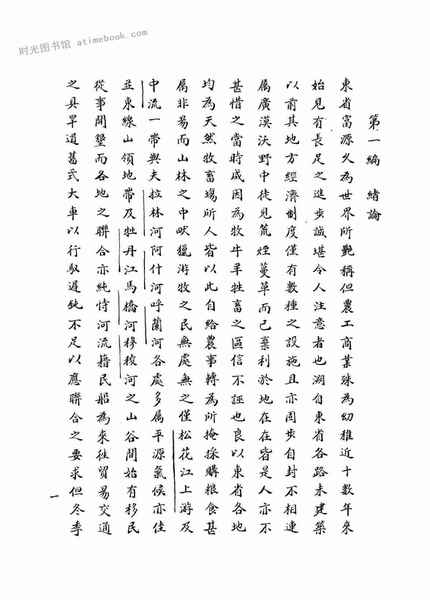 时光图书馆 atimebook.com
第一編 緒論
東省富源久為世界所艷稱但農工商業殊為幼稚近十數年來
始見有長足之進步誠堪令人注意者也溯自東省各路未建築
以前其地方經濟制度僅有數種之設施且亦固步自封不相連
屬廣漠沃野中徒見荒煙蔓草而已棄利於地在在皆是人亦不
甚惜之當時咸因為牧牛羊牲畜之區信不誣也良以東省各地
均為天然牧畜場所人皆以此自給農事轉為所掩採購糧食甚
屬非易而山林之中吠獵游牧之民無處無之僅松花江上游及
中流一帶與夫拉林河阿什河呼蘭河各處多屬平源氣候亦佳
並東線山領地帶及牡丹江馬橋河穆稜河之山谷間始有移民
從事開墾而各地之聯合亦純恃河流藉民船為來往貿易交通
之具旱道舊式大車以行馭遲鈍不足以應聯合之要求但冬季
一